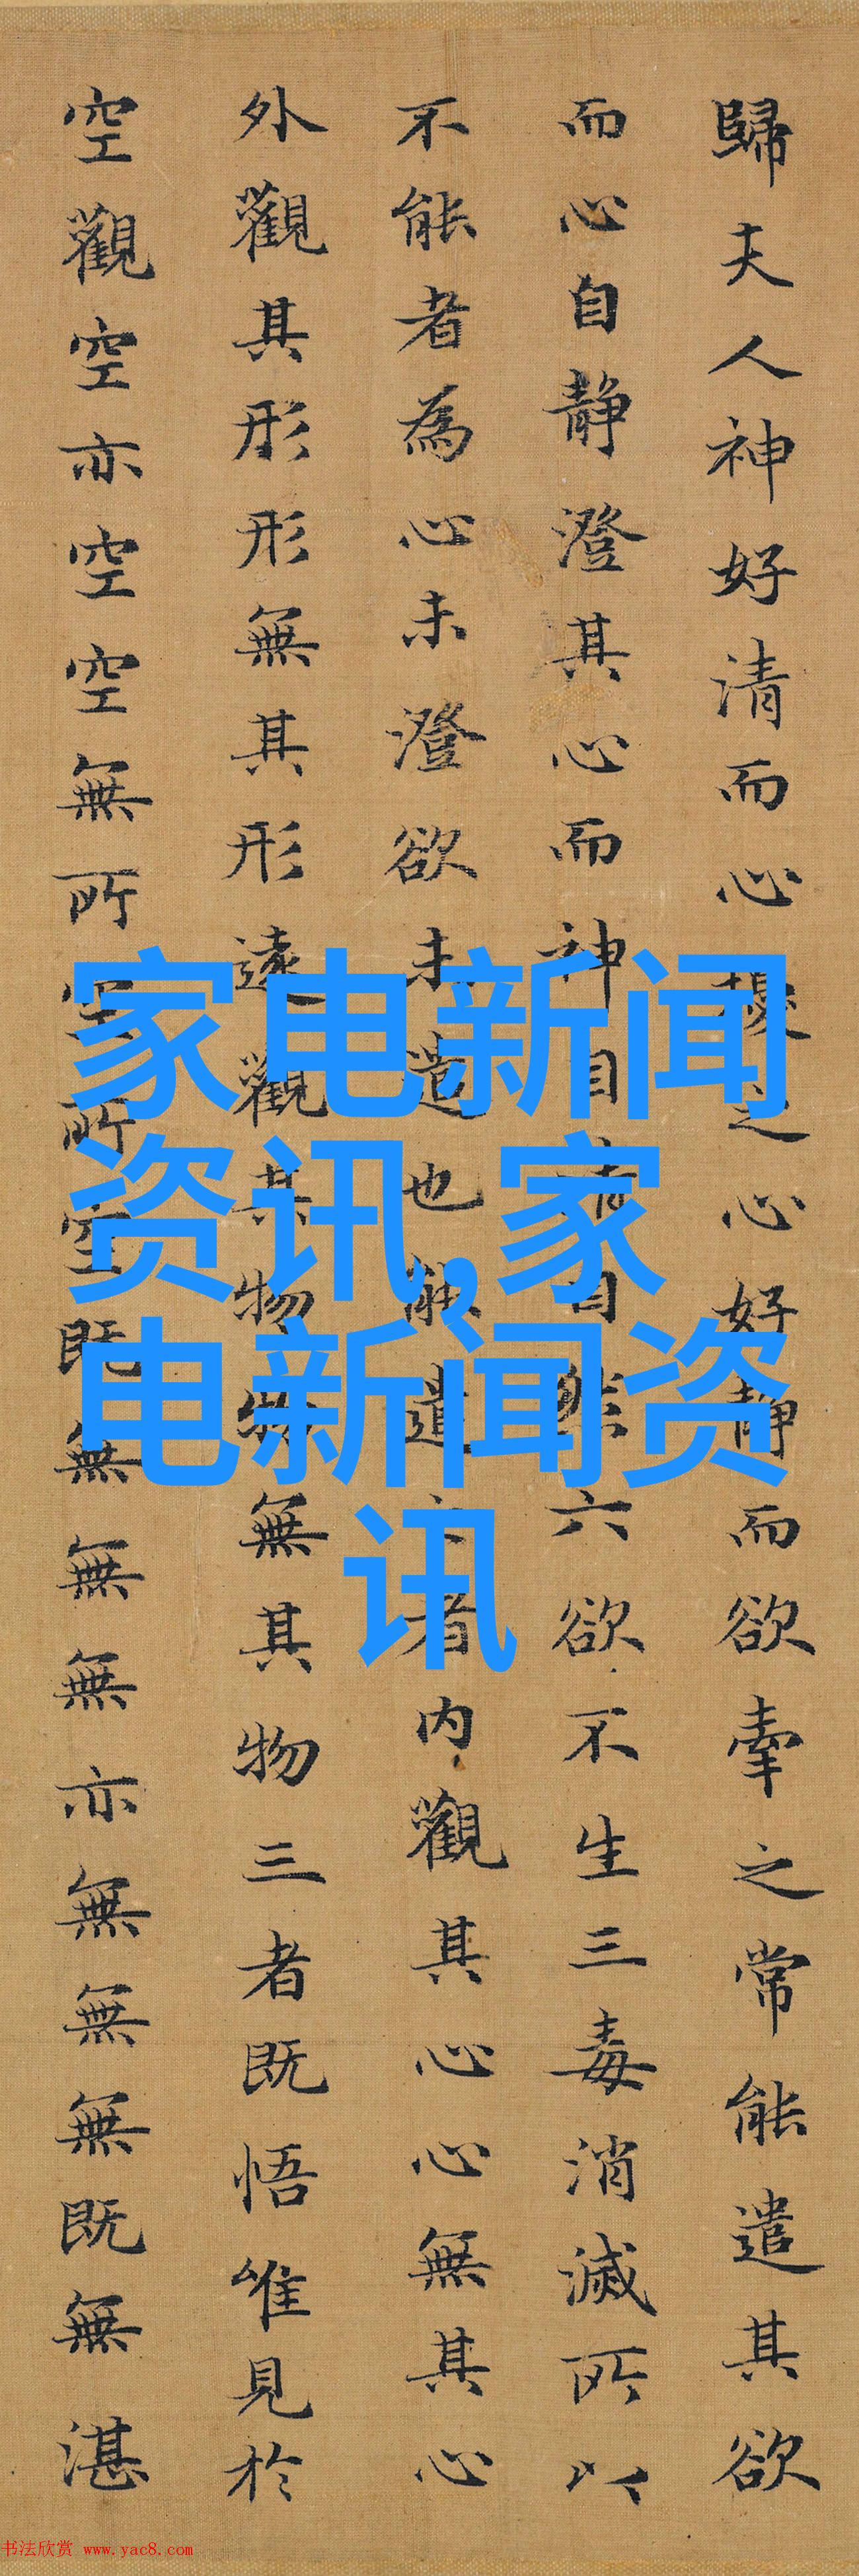 歸夫人神好清而心擾之心好静而欲牽之常能遣其欲
而心自静澄其心而神自清自然六欲不生三毒消滅所以
不能者為心未澄欲未遣也能遣之者内觀其心心無其心
外觀其形形無其形遠觀其物物無其物三者既悟唯見於
空觀空亦空空無所空所空既無無無亦無無無既無湛
家电新闻
资讯,家
电新闻资
讯
书法欣赏 www.yac8.com